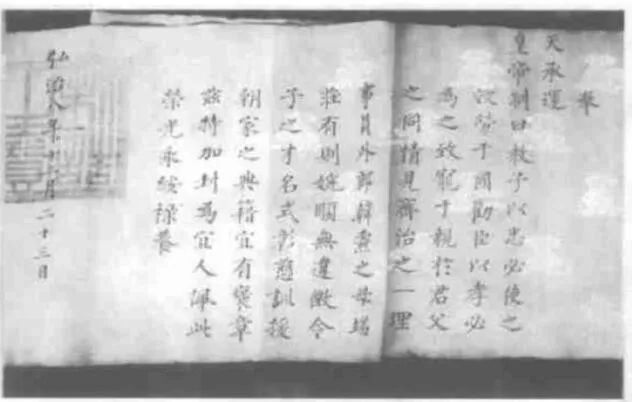 奉
天承運
皇帝制曰教子以忠必使之
效勞于國勸臣以孝必
為之致寵于親於君父
之同情見齊治之一理
事員外郎韓之母
莊有則婉順無違微令
子之才名式彰慈訓援
朝家之典籍宜有褒章
茲特加封為宜人佩此
榮光永綏祿養
弘治年十月二十三日